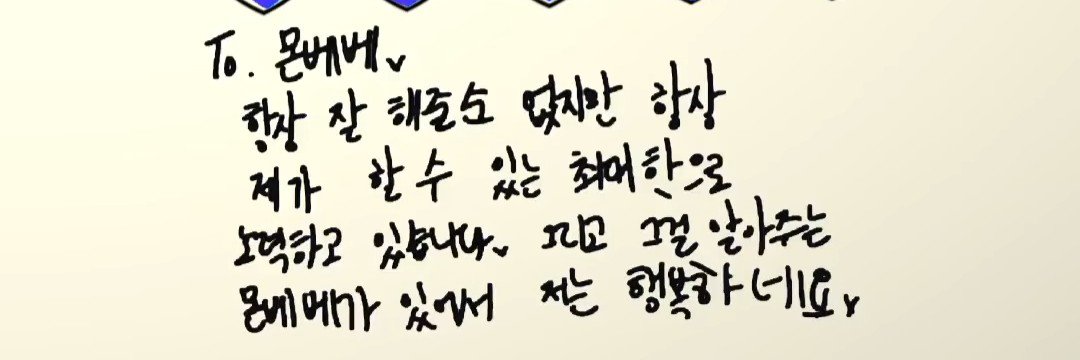 To. 몬베베
항상 잘 해줄순 없지만 항상
제가 할 수 있는 최대한으로
노력하고 있습니다. 그리고 그걸 알아주는
몬베베가 있어서 저는 행복하네요